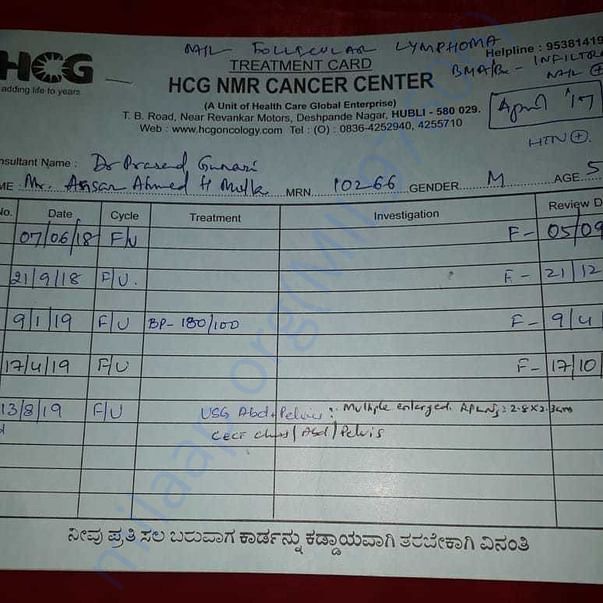 NHL FOLLICULAR LYMPHOMA
HCG
adding life to years
TREATMENT CARD
Helpline : 95381419
HCG NMR CANCER CENTER
(A Unit of Health Care Global Enterprise)
T. B. Road, Near Revankar Motors, Deshpande Nagar, HUBLI - 580 029.
Web : www.hcgoncology.com Tel : (O) : 0836-4252940, 4255710
April '17
HTN +
nsultant Name : Dr Prasad Gunari
ME Mr. Ansar Ahmed H Mulla MRN. 10266 GENDER M AGE 5
No. Date Cycle Treatment Investigation Review D
07/06/18 F/U F- 05/09
21/9/18 F/U. F- 21/12
9/1/19 F/U BP- 180/100 F- 9/4
17/4/19 F/U F- 17/10
13/8/19 F/U USG Abd + Pelvis : Multiple enlarged. 2.8 X 2.3cm
CECT chest/Abd/Pelvis
ನೀವು ಪ್ರತಿ ಸಲ ಬರುವಾಗ ಕಾರ್ಡನ್ನು ಕಡ್ಡಾಯವಾಗಿ ತರಬೇಕಾಗಿ ವಿನಂತಿ